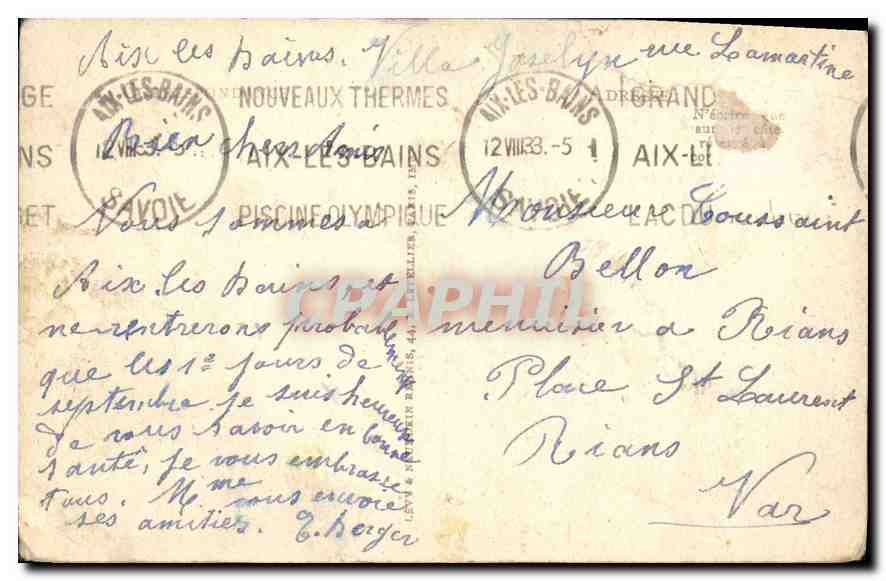 Aix les bains. Villa Joselyn rue Lamartine
AIX-LES-BAINS
12 VIII 33.-5
SAVOIE
NOUVEAUX THERMES
AIX-LES-BAINS
PISCINE OLYMPIQUE
AIX-LES-BAINS
12 VIII 33.-5
SAVOIE
GRAND
AIX-LE
LAC D
GE
NS
ET
ADRESSE
N'écrire que
sur le côté
Bien cher Amis
Vous sommes a
Aix les bains et
ne rentrerons probablement
que les 1er jours de
septembre je suis heureux
de vous savoir en bonne
santé, je vous embrasse
tous. Mme vous envoie
ses amitiés. E. Berger
LÉVY & NEURDEIN RÉUNIS, 44, LETELLIER, PARIS, IMP
Monsieur Toussaint
Bellon
menuisier a Rians
Place St Laurent
Rians
Var
CPAPHIL